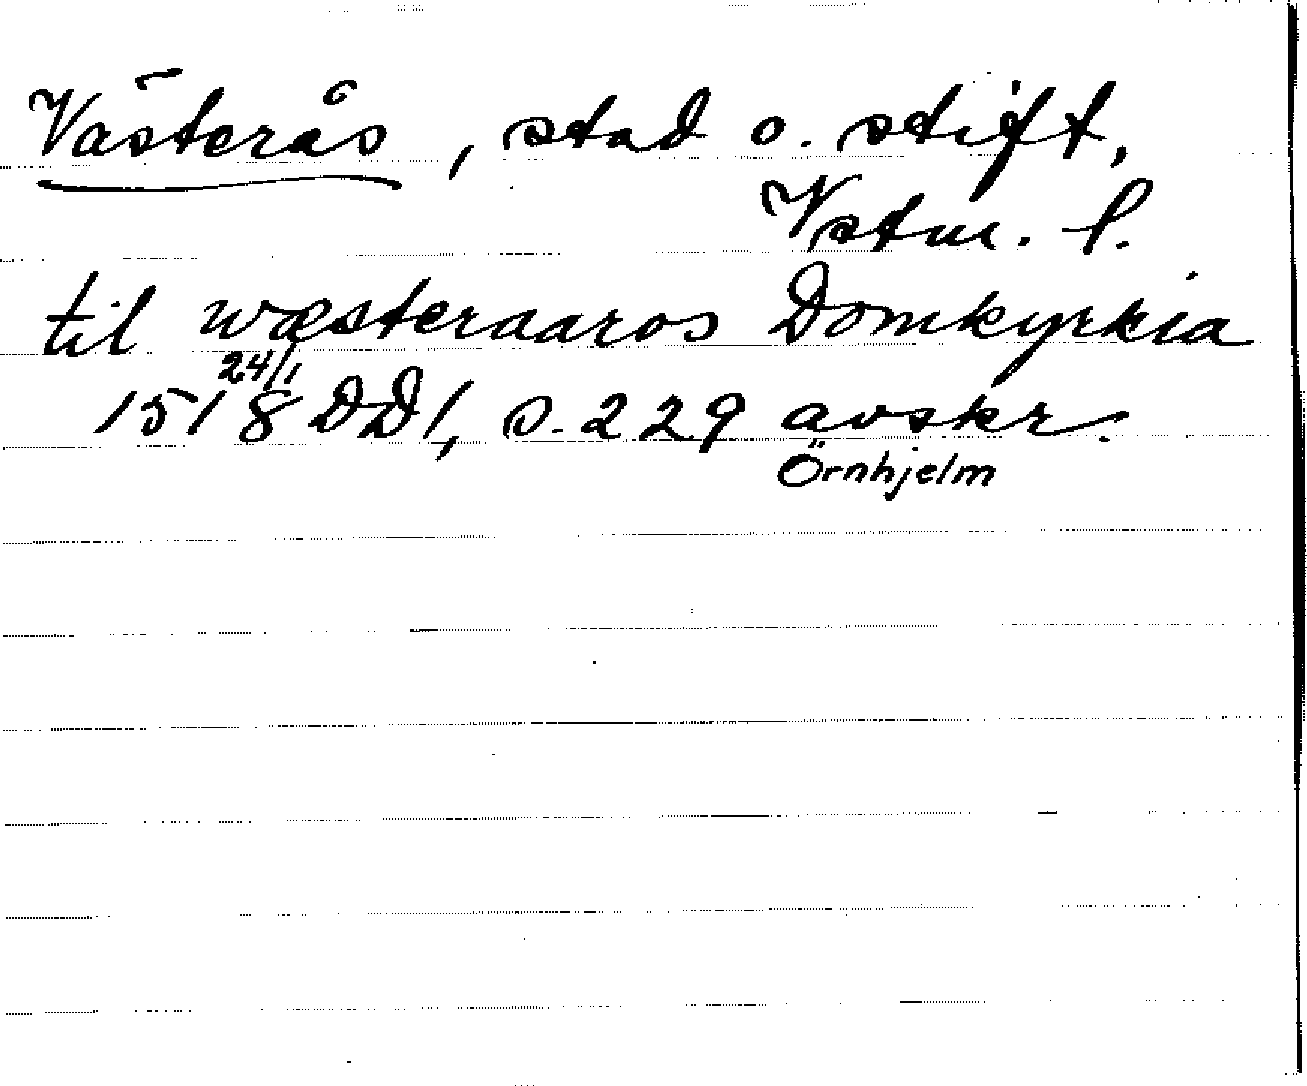 Västerås, stad o. stift,
Vstm. l.
til wæsteraaros Domkyrkia
24/1
1518 DD1, s. 229 avskr.
Örnhjelm